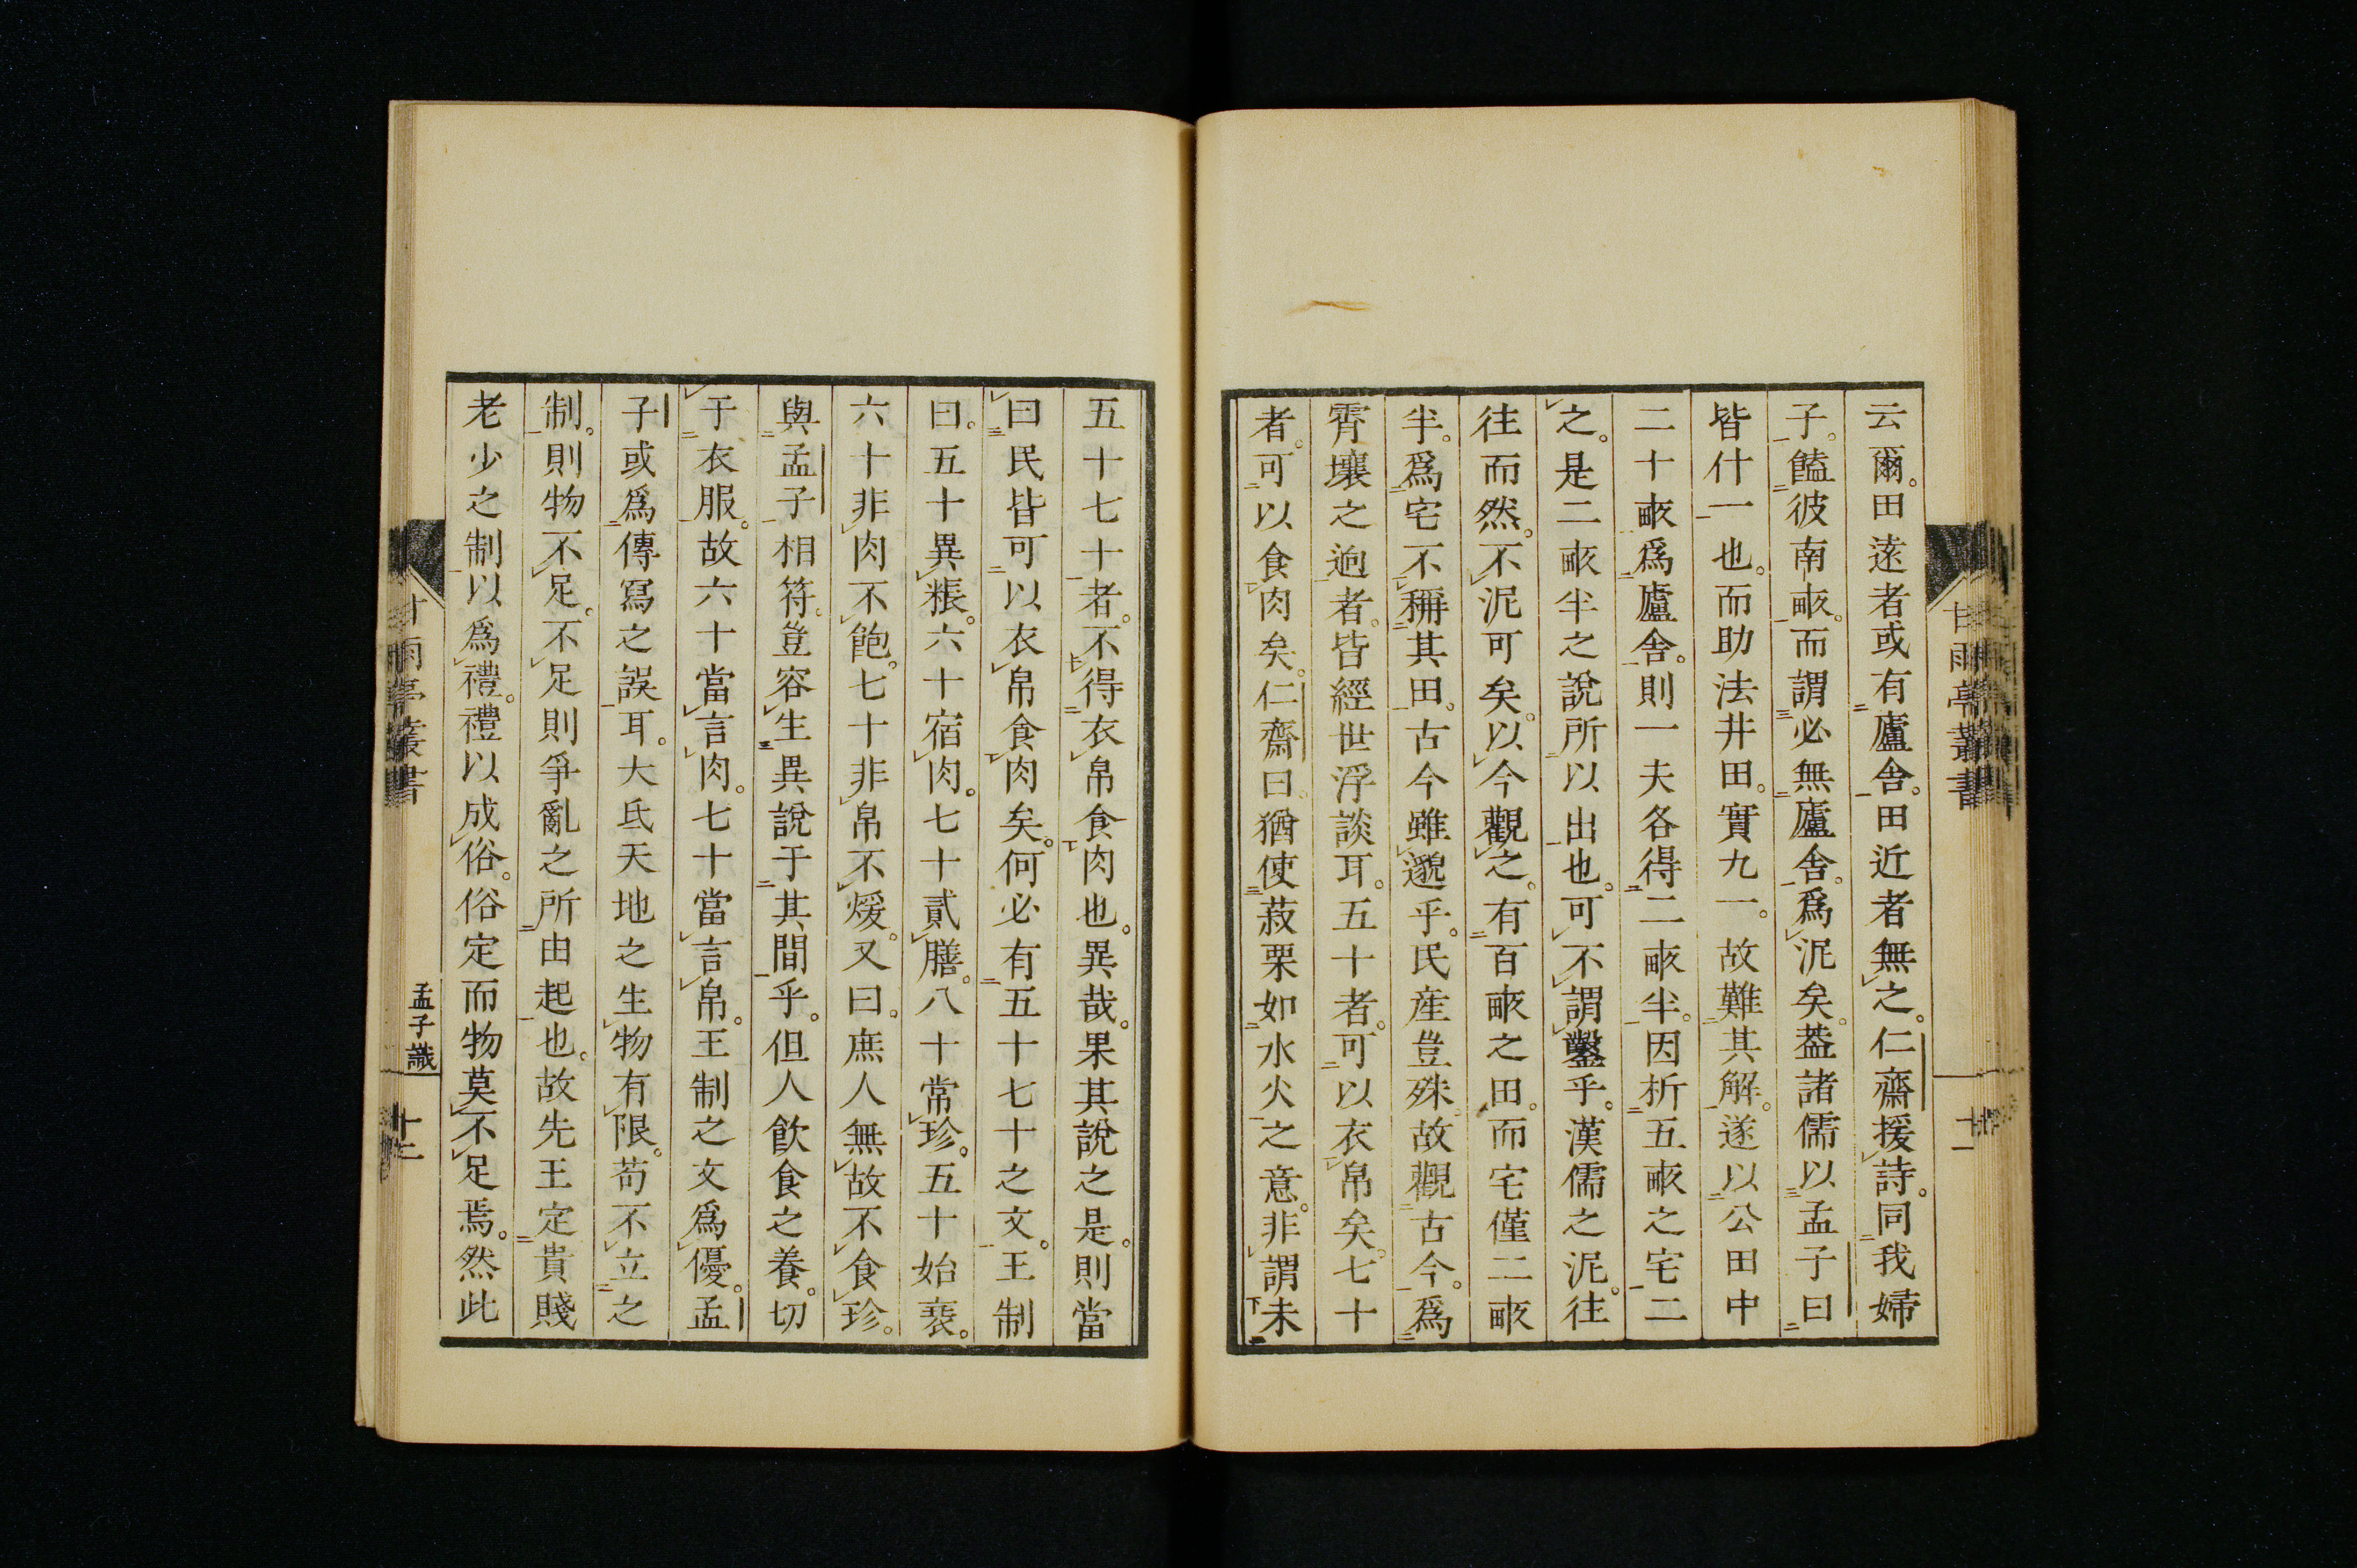 云爾。田遠者或有廬舍。田近者無之。仁齋援詩。同我婦
子。饁彼南畞。而謂必無廬舍。爲泥矣。葢諸儒以孟子曰
皆什一也。而助法井田。實九一。故難其解。遂以公田中
二十畞爲廬舍。則一夫各得二畞半。因析五畞之宅二
之。是二畞半之說所以出也。可不謂鑿乎。漢儒之泥。往
往而然。不泥可矣。以今觀之。有百畞之田。而宅僅二畞
半。爲宅不稱其田。古今雖邈乎。民產豈殊。故觀古今。爲
霄壤之逈者。皆經世浮談耳。五十者。可以衣帛矣。七十
者。可以食肉矣。仁齋曰。猶使菽粟如水火之意。非謂未
甘雨亭叢書
十一
五十七十者。不得衣帛食肉也。異哉。果其說之是。則當
曰民皆可以衣帛食肉矣。何必有五十七十之文。王制
曰。五十異粻。六十宿肉。七十貳膳。八十常珍。五十始衰。
六十非肉不飽。七十非帛不煖。又曰。庶人無故不食珍。
與孟子相符。豈容生異說于其間乎。但人飲食之養。切
于衣服。故六十當言肉。七十當言帛。王制之文爲優。孟
子或爲傳寫之誤耳。大氐天地之生物有限。苟不立之
制。則物不足。不足則爭亂之所由起也。故先王定貴賤
老少之制以爲禮。禮以成俗。俗定而物莫不足焉。然此
甘雨亭叢書
孟子識
十二